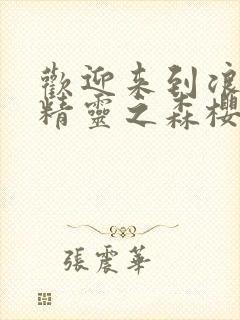 歡迎来到浪
精靈之森櫻
張震華